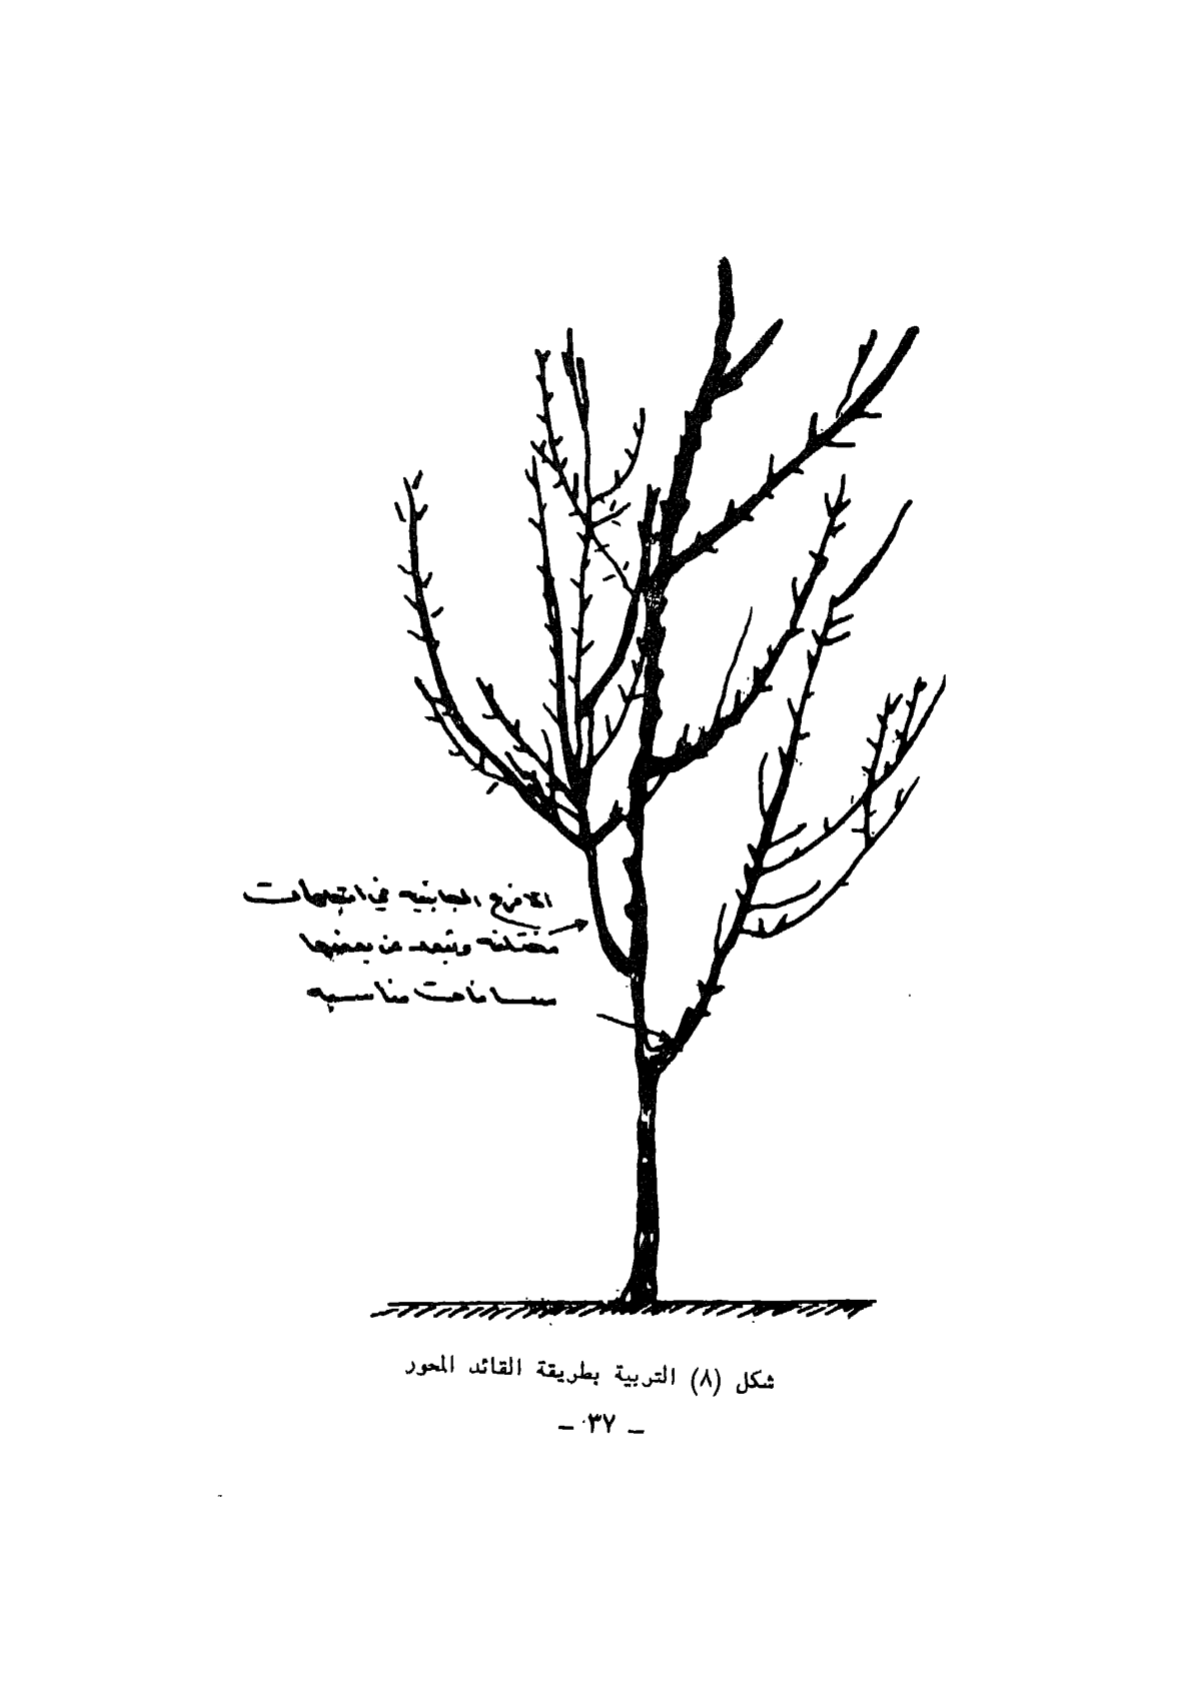 الافرع الجانبية في اتجاهات
مختلفه وتبعد عن بعضها
مسافات مناسبه
شكل (٨) التربية بطريقة القائد المحور
ـ ٣٧ ـ